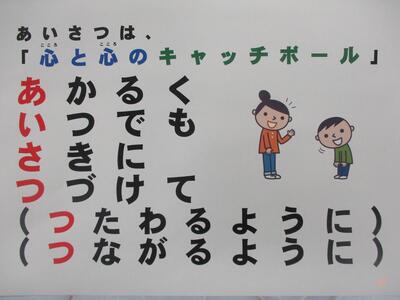 あいさつは、
「心と心のキャッチボール」
あかるく
いつでも
さきに
つづけて
(つたわるように)
(つながるように)